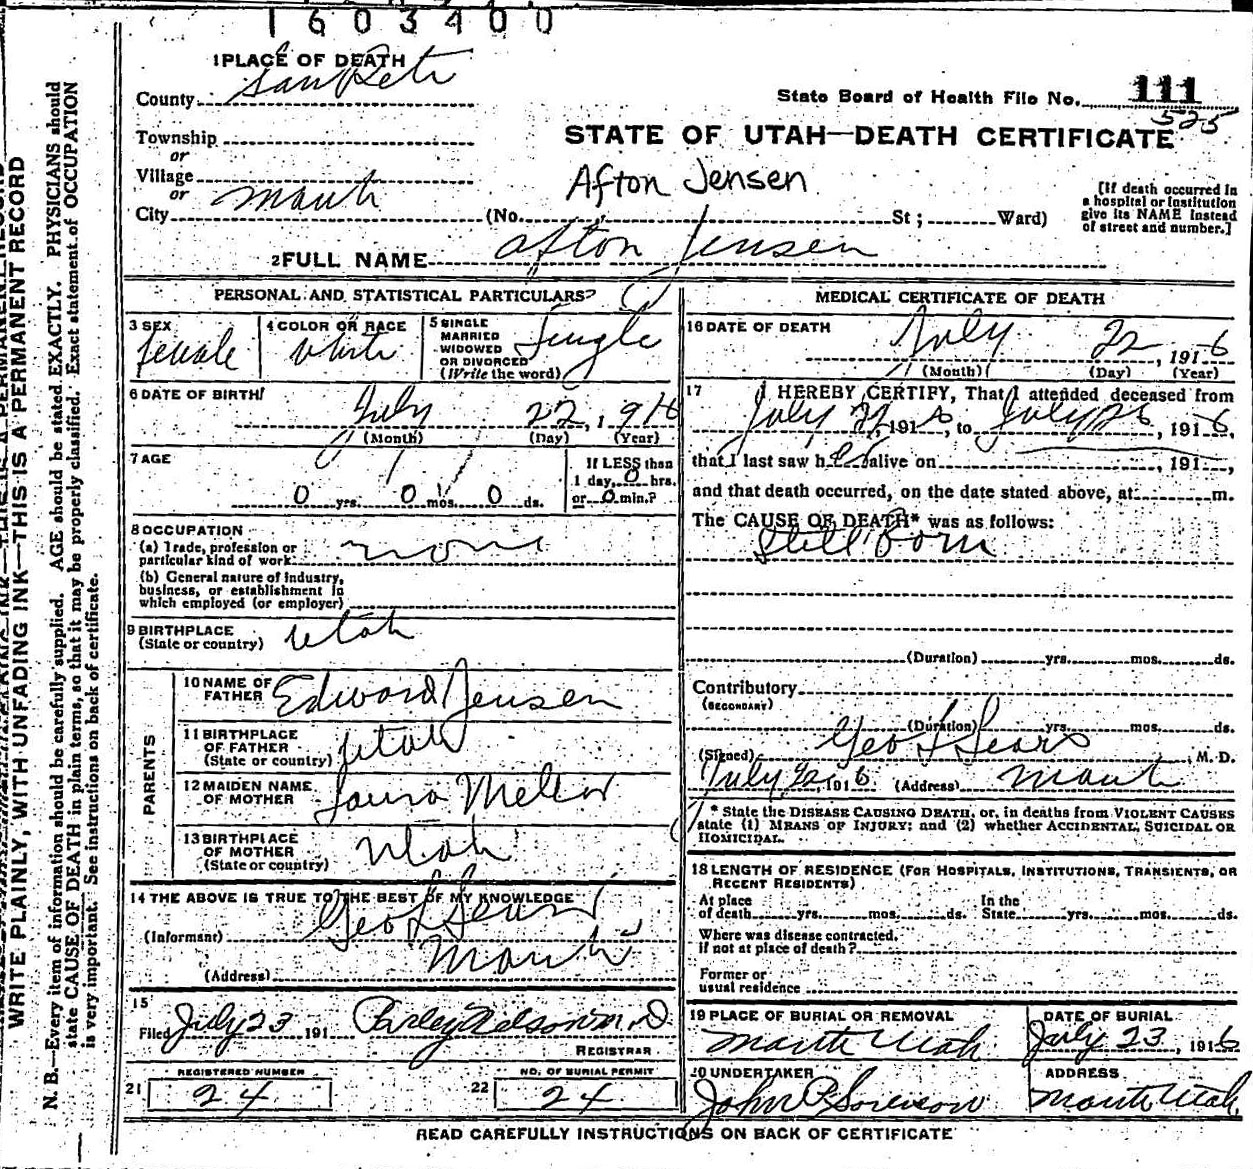 1603400
1 PLACE OF DEATH
County SanPete
State Board of Health File No. 111
525
Township
or
Village
or
City Manti
STATE OF UTAH—DEATH CERTIFICATE
Afton Jensen
(No. St; Ward)
[If death occurred in
a hospital or institution
give its NAME instead
of street and number.]
2 FULL NAME Afton Jensen
PERSONAL AND STATISTICAL PARTICULARS
3 SEX
female
4 COLOR OR RACE
White
5 SINGLE
MARRIED
WIDOWED
OR DIVORCED
(Write the word)
Single
6 DATE OF BIRTH
July 22, 1916
(Month) (Day) (Year)
7 AGE
0 yrs. 0 mos. 0 ds.
If LESS than
1 day, 0 hrs.
or 0 min.?
8 OCCUPATION
(a) Trade, profession or
particular kind of work none
(b) General nature of industry,
business, or establishment in
which employed (or employer)
9 BIRTHPLACE
(State or country) Utah
PARENTS
10 NAME OF
FATHER Edward Jensen
11 BIRTHPLACE
OF FATHER
(State or country) Utah
12 MAIDEN NAME
OF MOTHER Laura Mellor
13 BIRTHPLACE
OF MOTHER
(State or country) Utah
14 THE ABOVE IS TRUE TO THE BEST OF MY KNOWLEDGE
(Informant) Geo L Sears
(Address) Manti
15
Filed July 23 191 Parley Nelson M.D
REGISTRAR
21 REGISTERED NUMBER
24
22 NO. OF BURIAL PERMIT
24
MEDICAL CERTIFICATE OF DEATH
16 DATE OF DEATH
July 22, 1916
(Month) (Day) (Year)
17 I HEREBY CERTIFY, That I attended deceased from
July 22, 1916, to July 26, 1916,
that I last saw her alive on , 191 ,
and that death occurred, on the date stated above, at m.
The CAUSE OF DEATH* was as follows:
Still Born
(Duration) yrs. mos. ds.
Contributory
(SECONDARY)
(Duration) yrs. mos. ds.
(Signed) Geo L Sears, M. D.
July 22, 1916 (Address) Manti
* State the DISEASE CAUSING DEATH, or, in deaths from VIOLENT CAUSES
state (1) MEANS OF INJURY; and (2) whether ACCIDENTAL, SUICIDAL OR
HOMICIDAL.
18 LENGTH OF RESIDENCE (FOR HOSPITALS, INSTITUTIONS, TRANSIENTS, OR
RECENT RESIDENTS)
At place
of death yrs. mos. ds.
In the
State yrs. mos. ds.
Where was disease contracted.
if not at place of death?
Former or
usual residence
19 PLACE OF BURIAL OR REMOVAL
Manti Utah
DATE OF BURIAL
July 23, 1916
20 UNDERTAKER
John P Sorenson
ADDRESS
Manti Utah
READ CAREFULLY INSTRUCTIONS ON BACK OF CERTIFICATE
WRITE PLAINLY, WITH UNFADING INK—THIS IS A PERMANENT RECORD
N. B.—Every item of information should be carefully supplied. AGE should be stated EXACTLY. PHYSICIANS should
state CAUSE OF DEATH in plain terms, so that it may be properly classified. Exact statement of OCCUPATION
is very important. See instructions on back of certificate.